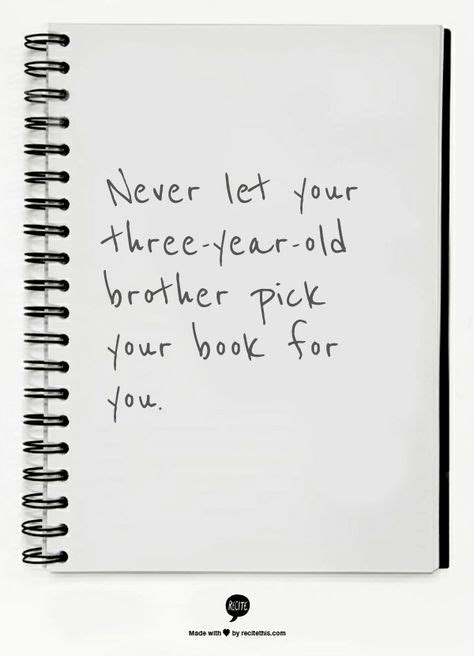 Never let your
three-year-old
brother pick
your book for
you.
RECITE
Made with ♥ by recitethis.com